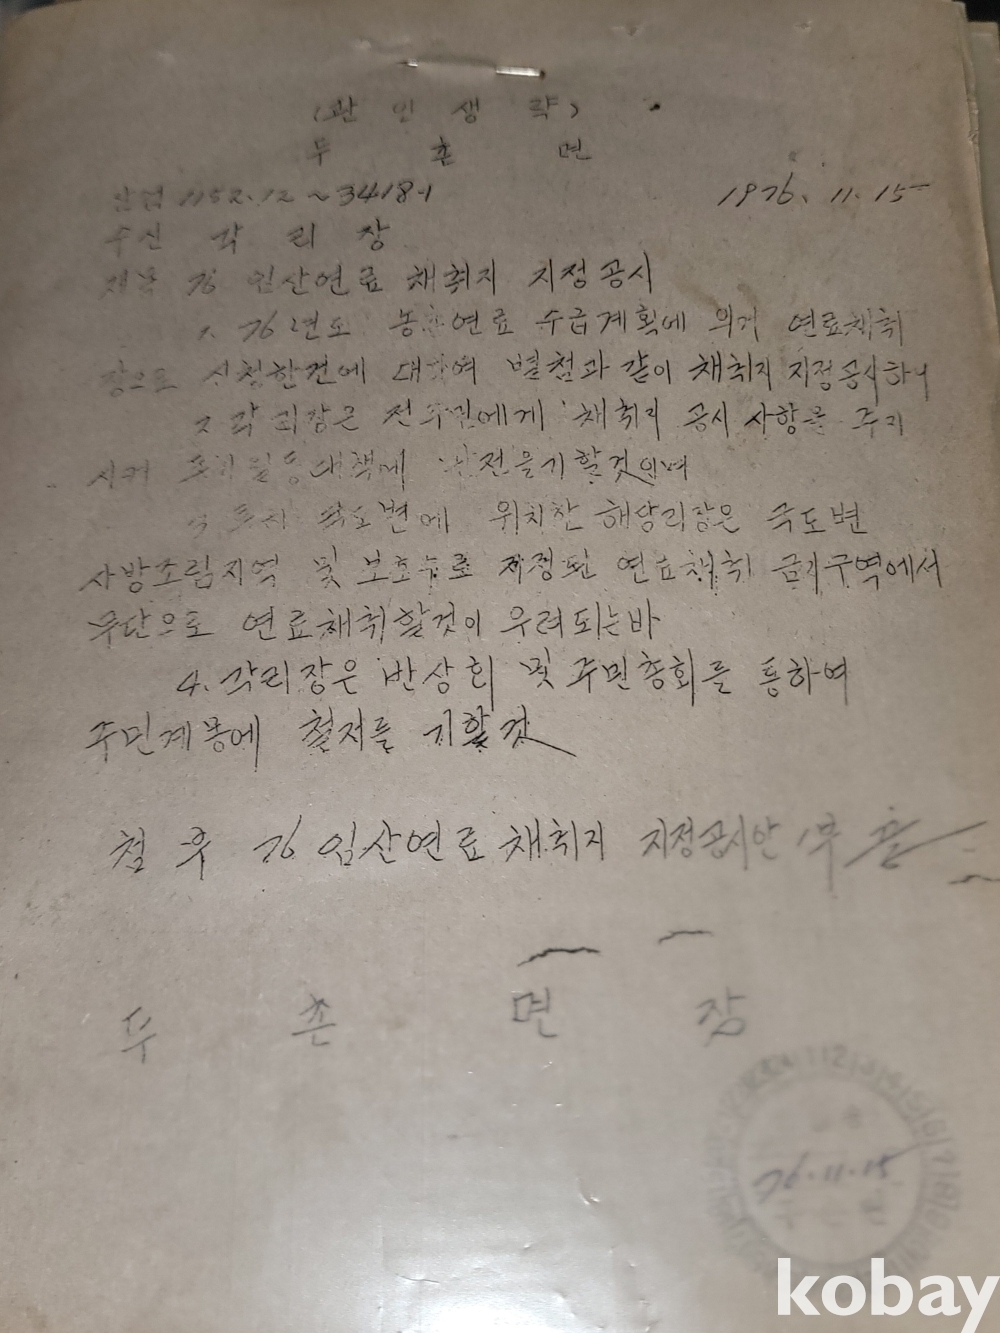 (관 인 생 략)
두 촌 면
산업 1152.12~3418-1 1976. 11. 15
수신 각 리 장
제목 76 임산연료 채취지 지정공시
1. 76년도 농촌연료 수급계획에 의거 연료채취
장으로 신청한건에 대하여 별첨과 같이 채취지 지정공시하니
2 각 리장은 전주민에게 채취지 공시 사항을 주지
시켜 만전을기할것이며
국도변에 위치한 해당리장은 국도변
사방조림지역 및 지정된 연료채취 금지구역에서
무단으로 연료채취할것이 우려되는바
4. 각리장은 반상회 및 주민총회를 통하여
주민계몽에 철저를 기할것
첨부 76 임산연료 채취지 지정공시안 1부 끝
두 촌 면 장
76.11.15
kobay